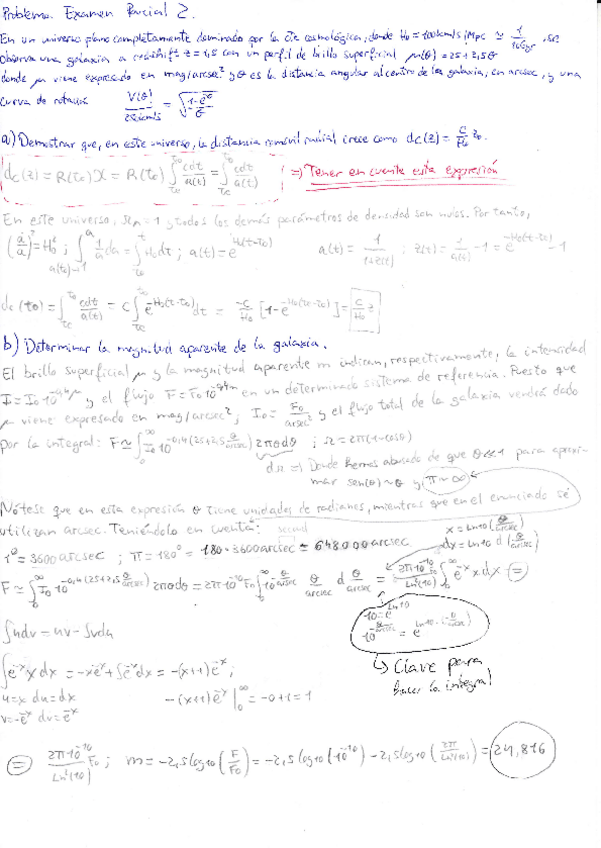 Problema. Examen Parcial 2.
En un universo plano completamente dominado por la cte cosmológica, donde H₀ = 100km/s/Mpc ≃ 1/10Gyr, se
observa una galaxia a redshift z = 1,5 con un perfil de brillo superficial μ(θ) = 25 + 2,5θ
donde μ viene expresado en mag/arcsec² y θ es la distancia angular al centro de la galaxia, en arcsec, y una
curva de rotación V(θ)/ km/s = √(1-e^-θ/θ)
a) Demostrar que, en este universo, la distancia comóvil radial crece como dc(z) = c/H₀ z.
dc(z) = R(t₀)X = R(t₀) ∫ cdt/R(t) = ∫ cdt/a(t) ⇒ Tener en cuenta esta expresión
En este universo, Ω_Λ = 1 y todos los demás parámetros de densidad son nulos. Por tanto,
(ȧ/a)² = H₀² ; ∫ 1/a da = ∫ H₀dt ; a(t) = e^H₀(t-t₀) a(t) = 1/1+z(t) ; z(t) = 1/a(t) - 1 = e^-H₀(t-t₀) - 1
dc(t₀) = ∫ cdt/a(t) = c∫ e^-H₀(t-t₀) dt = -c/H₀ [1-e^-H₀(te-t₀)] = c/H₀ z
b) Determinar la magnitud aparente de la galaxia.
El brillo superficial μ y la magnitud aparente m indican, respectivamente, la intensidad
I = I₀ 10^-0,4μ y el flujo F = F₀ 10^-0,4m en un determinado sistema de referencia. Puesto que
μ viene expresado en mag/arcsec² ; I₀ = F₀/arcsec² y el flujo total de la galaxia vendrá dado
por la integral: F ≃ ∫ I₀ 10^-0,4(25+2,5 θ/arcsec) 2πθdθ ; Ω = 2π(1-cosθ)
dΩ ⇒ Donde hemos abusado de que θ≪1 para aproxi-
mar sen(θ) ~ θ y π ~ ∞
Nótese que en esta expresión θ tiene unidades de radianes, mientras que en el enunciado se
utilizan arcsec. Teniéndolo en cuenta:
1° = 3600 arcsec ; π = 180° = 180·3600 arcsec = 648000 arcsec
x = Ln10 (θ/arcsec)
dx = Ln10 d(θ/arcsec)
F ≃ ∫ I₀ 10^-0,4(25+2,5 θ/arcsec) 2πθdθ = 2π·10^-10 F₀ ∫ 10^-θ/arcsec θ/arcsec d θ/arcsec = 2π·10^-10 F₀/Ln²(10) ∫ e^-x x dx =
10 = e^Ln10
10^-θ/arcsec = e^-Ln10·(θ/arcsec)
↳ Clave para
hacer la integral
∫udv = uv - ∫vdu
∫e^-x x dx = -xe^-x + ∫e^-x dx = -(x+1)e^-x ;
u = x du = dx -(x+1)e^-x |₀^∞ = -0+1 = 1
v = -e^-x dv = e^-x
= 2π·10^-10/Ln²(10) F₀ ; m = -2,5log10 (F/F₀) = -2,5log10 (10^-10) - 2,5log10 (2π/Ln²(10)) = 24,816